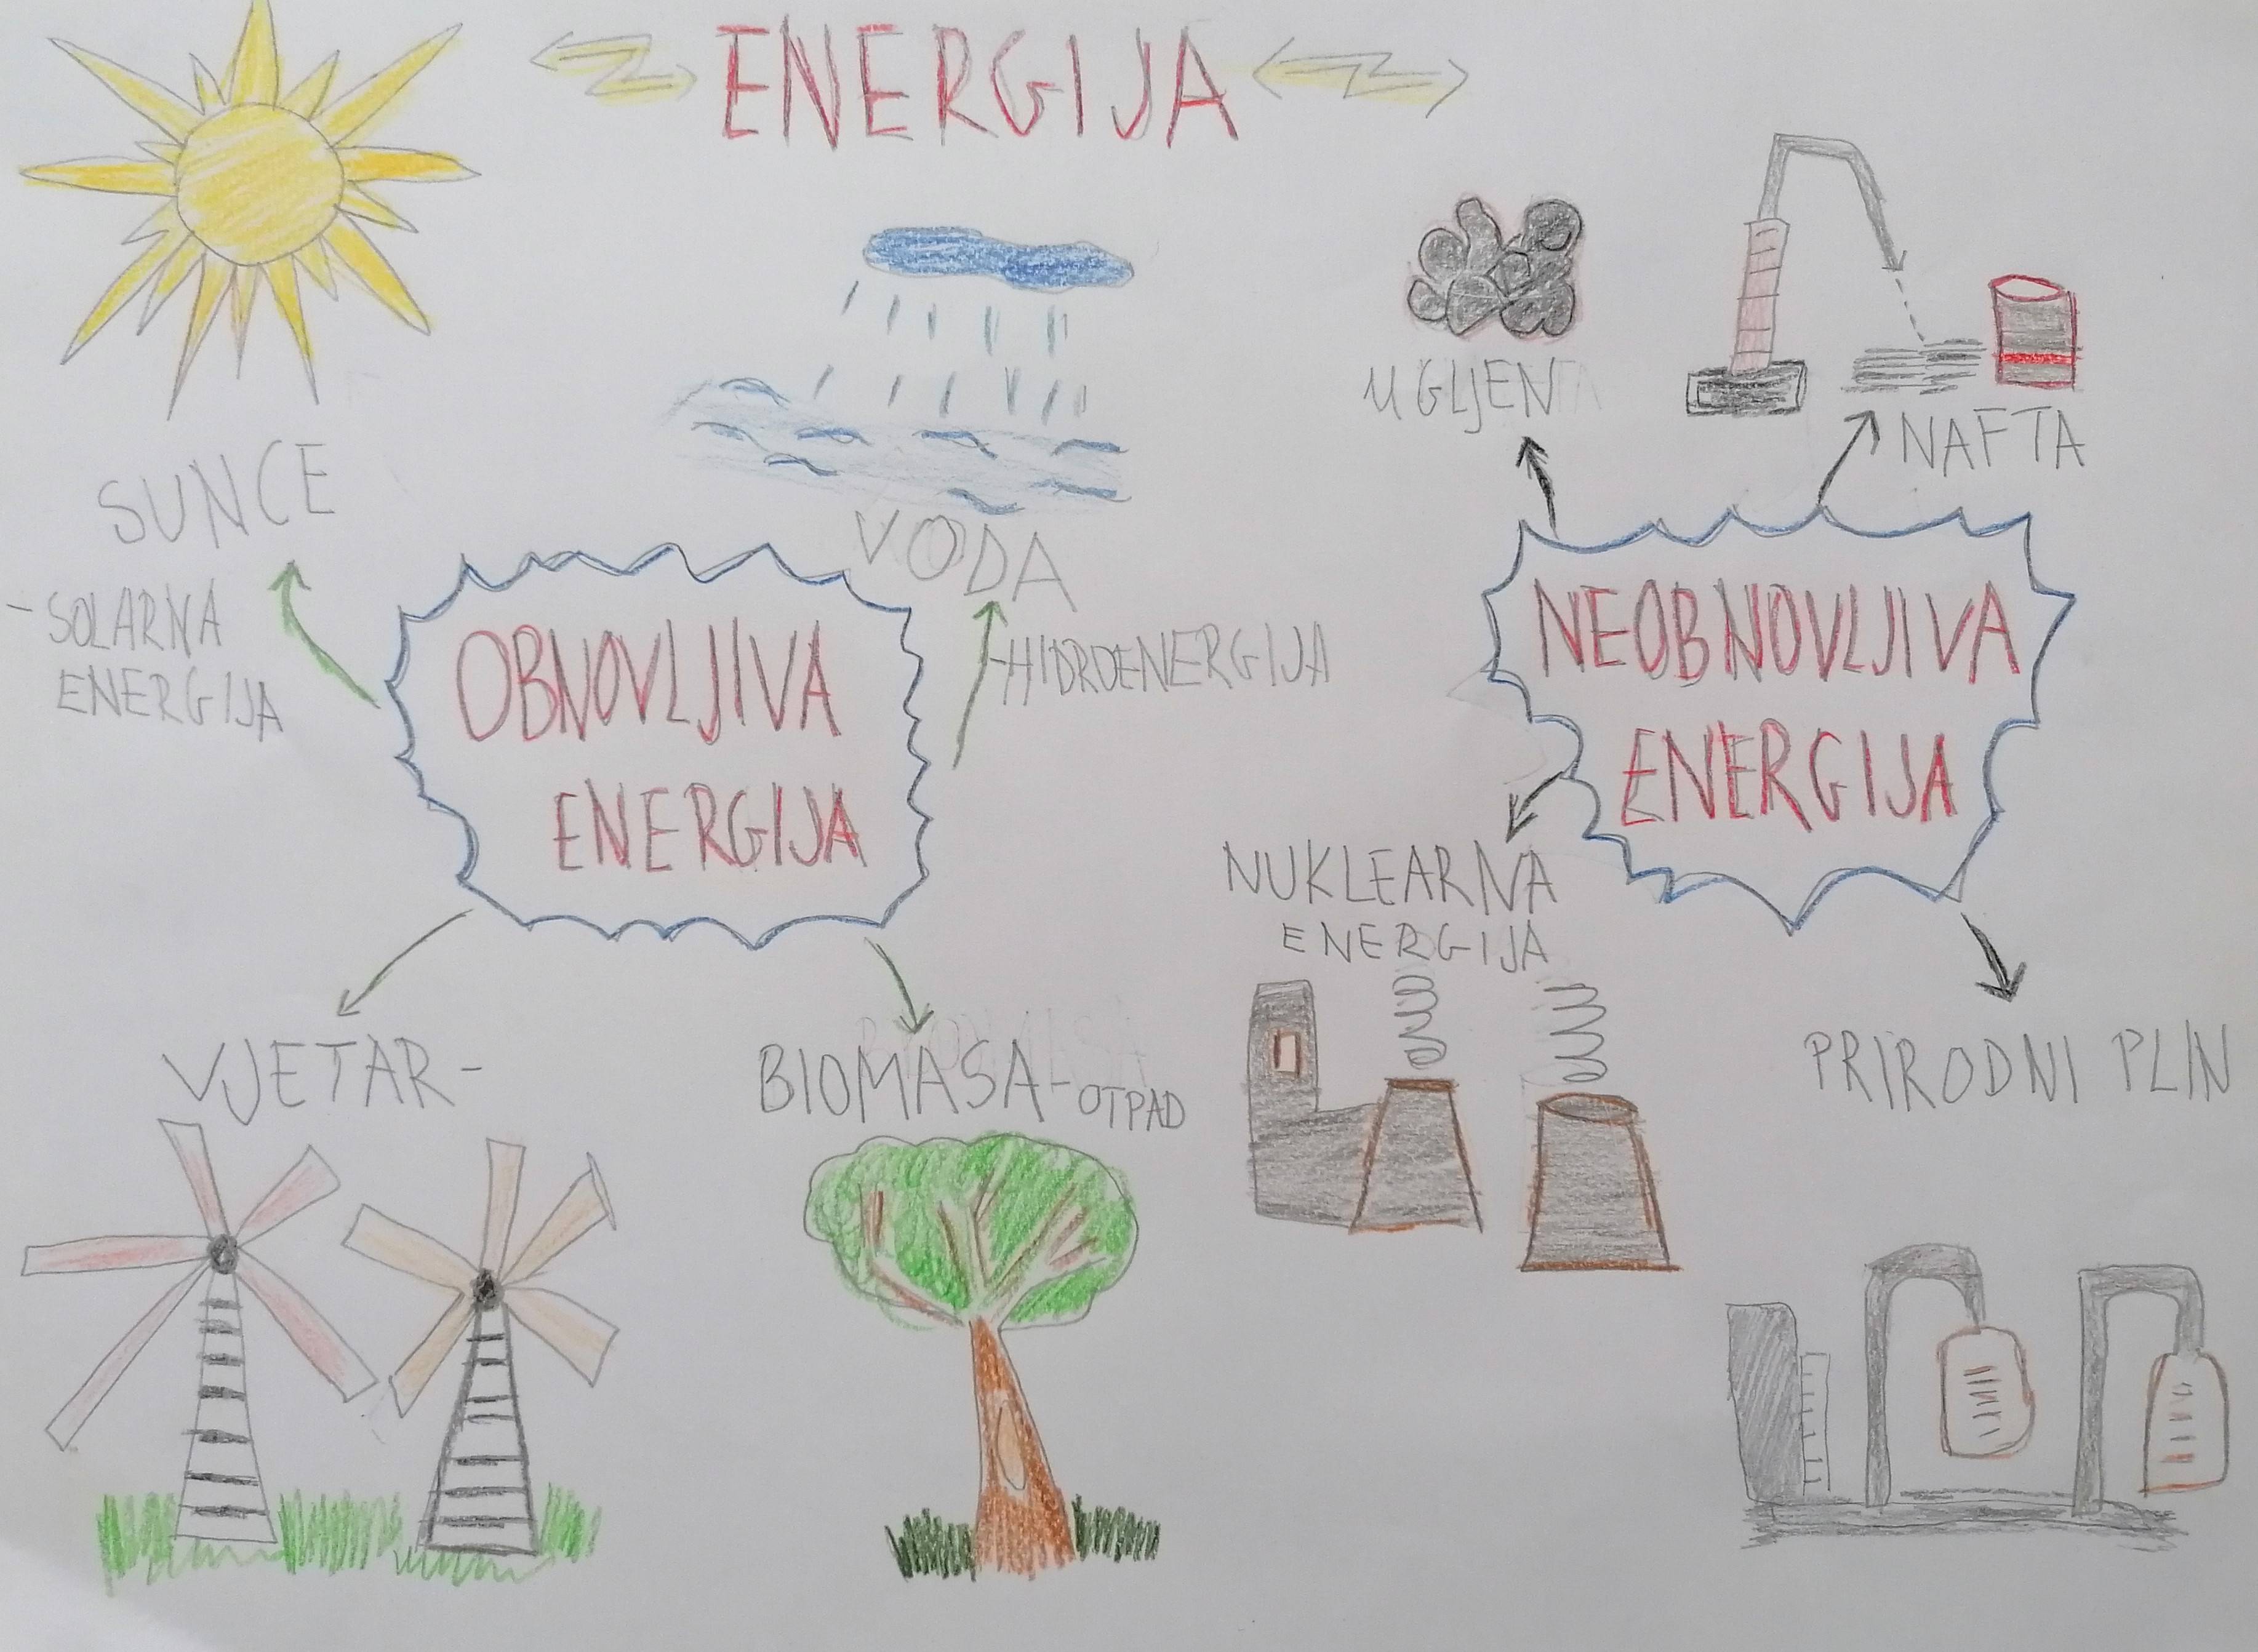 ENERGIJA
SUNCE
-SOLARNA
ENERGIJA
VODA
-HIDROENERGIJA
OBNOVLJIVA
ENERGIJA
VJETAR-
BIOMASA-OTPAD
UGLJEN
NAFTA
NEOBNOVLJIVA
ENERGIJA
NUKLEARNA
ENERGIJA
PRIRODNI PLIN